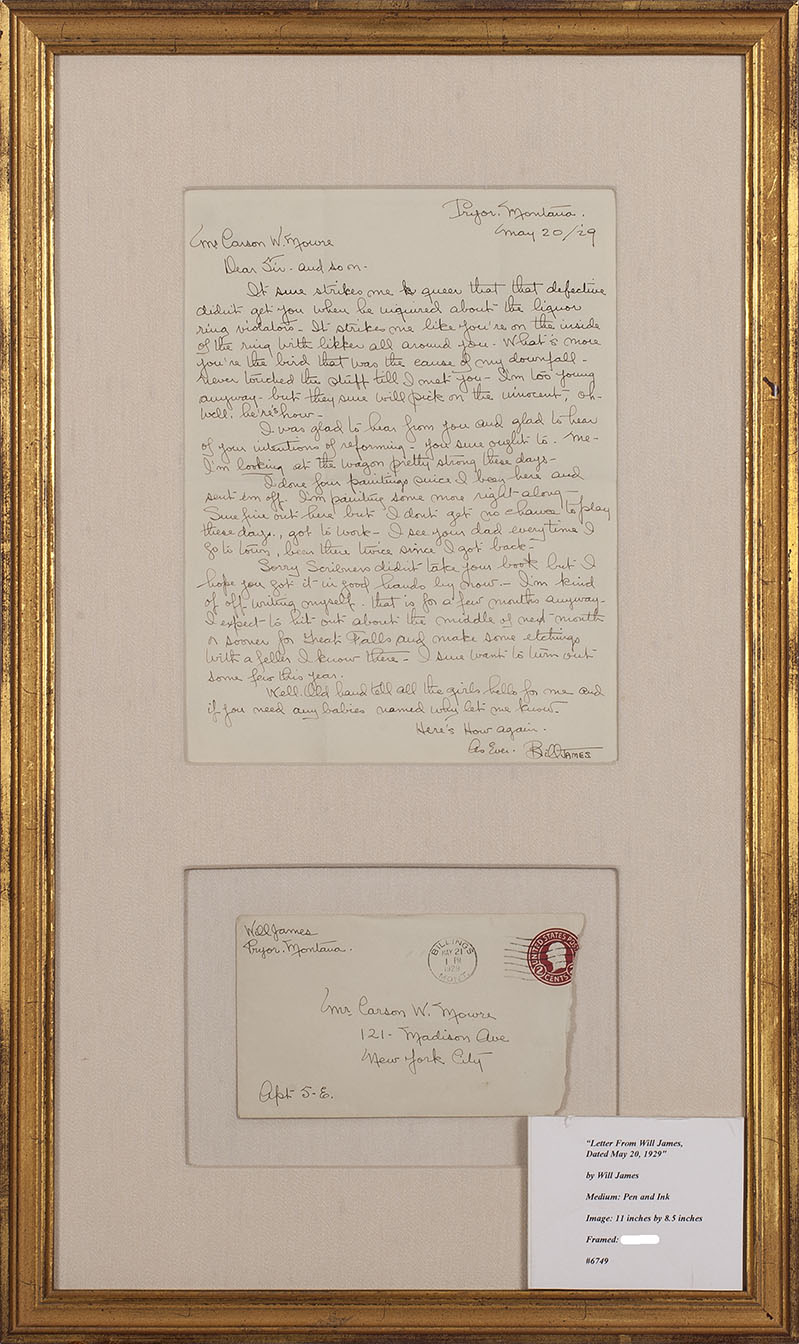 Pryor. Montana.
May 20/29
Mr Carson W. Mowre
Dear Sir. and so on-
It sure strikes me queer that that defective
didn't get you when he inquired about the liquor
ring violators- It strikes me like you're on the inside
of the ring with likker all around you. What's more
you're the bird that was the cause of my downfall-
Never touched the stuff till I met you- I'm too young
anyway- but they sure will pick on the innocent, oh-
well. here's how-
I was glad to hear from you and glad to hear
of your intentions of reforming- you sure ought to. Me-
I'm looking at the wagon pretty strong these days-
I done four paintings since I been here and
sent em off. I'm painting some more right along-
Sure fine out here but I dont get no chance to play
these days., got to work- I see your dad everytime I
go to town, been there twice since I got back-
Sorry Scribners didn't take your book but I
hope you got it in good hands by now.- I'm kind
of off writing myself. that is for a few months anyway-
I expect to hit out about the middle of next month
or sooner for Great Falls and make some etchings
with a feller I know there- I sure want to turn out
some few this year.
Well. Old hand tell all the girls hello for me and
if you need any babies named why let me know-
Here's How again.
As Ever. Bill JAMES
Will James
Pryor. Montana.
BILLINGS
MAY 21
1 PM
1929
MONT.
UNITED STATES POS
2 CENTS 2
Mr. Carson W. Mowre
121- Madison Ave
New York City
Apt 5-E.
"Letter From Will James,
Dated May 20, 1929"
by Will James
Medium: Pen and Ink
Image: 11 inches by 8.5 inches
Framed:
#6749